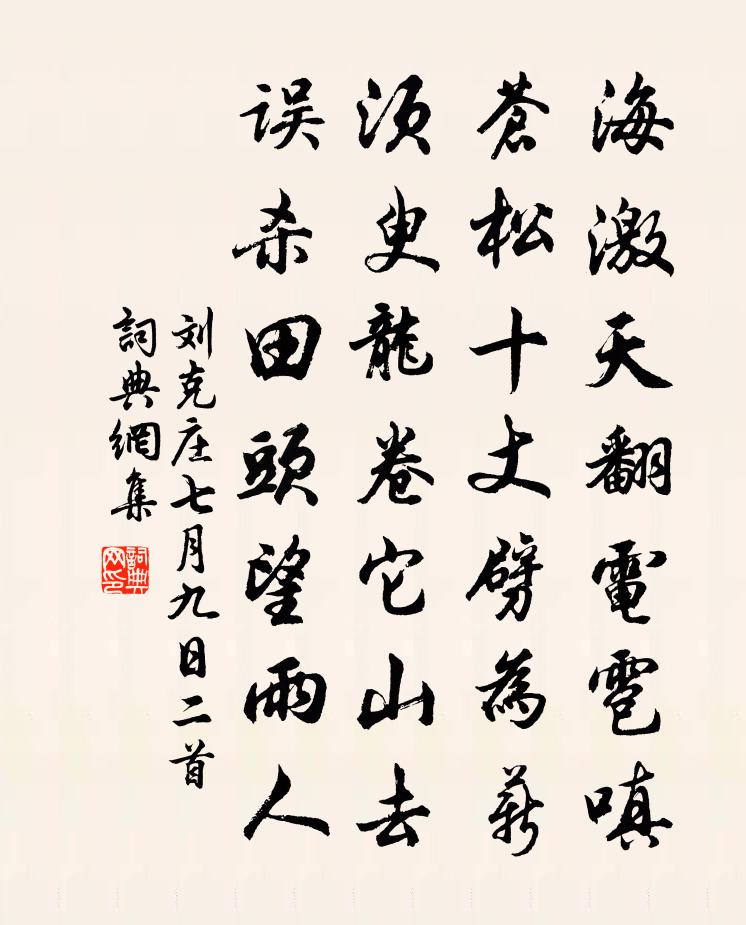 海激天翻電雹嗔
蒼松十丈劈為薪
须臾龍卷它山去
误杀田頭望雨人
刘克庄七月九日二首
詞典網集
詞典网印